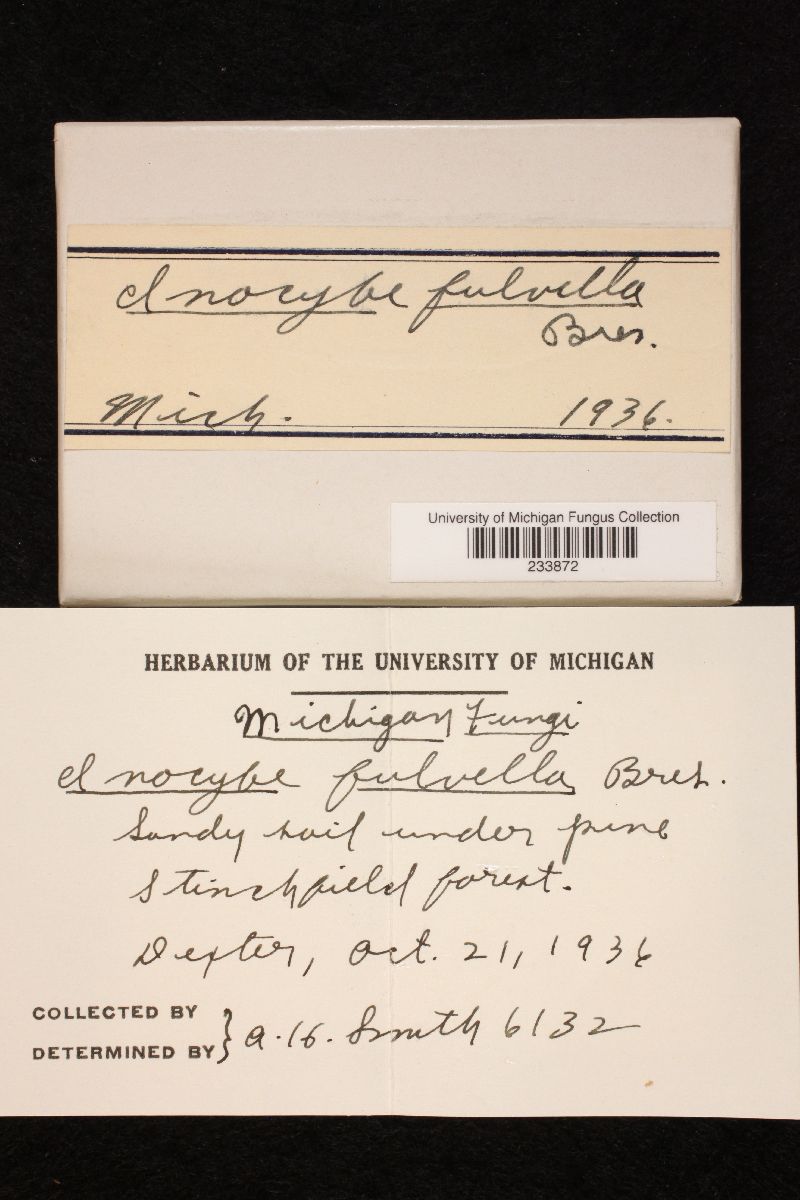 Inocybe fulvella
Bres.
Mich. 1936.
University of Michigan Fungus Collection
233872
HERBARIUM OF THE UNIVERSITY OF MICHIGAN
Michigan Fungi
Inocybe fulvella Bres.
Sandy soil under pine
Stinchfield forest.
Dexter, Oct. 21, 1936
COLLECTED BY
DETERMINED BY } A. H. Smith 6132